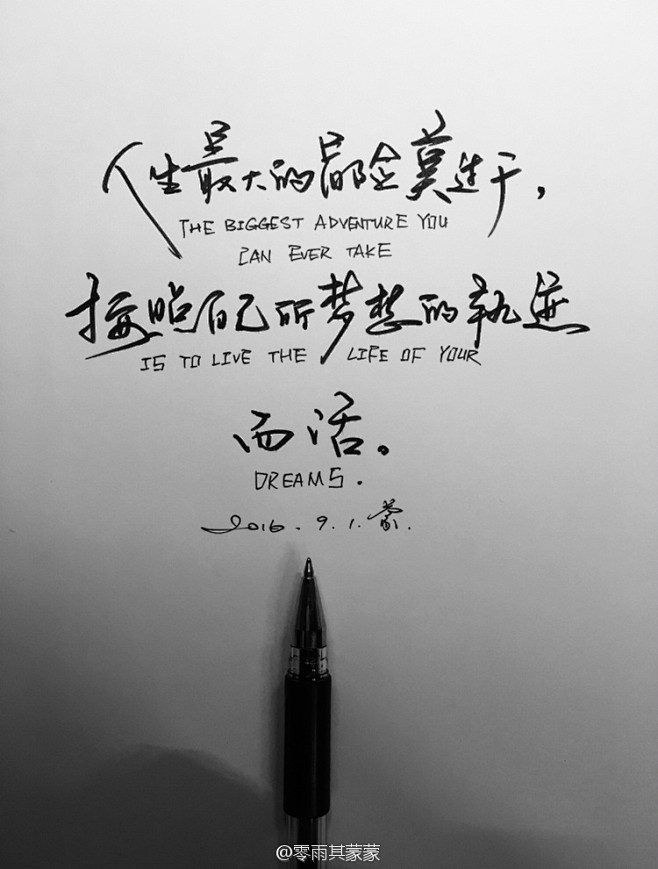 人生最大的冒险莫过于，
THE BIGGEST ADVENTURE YOU
CAN EVER TAKE
按照自己所梦想的轨迹
IS TO LIVE THE LIFE OF YOUR
而活。
DREAMS.
2016.9.1.蒙.
@零雨其蒙蒙